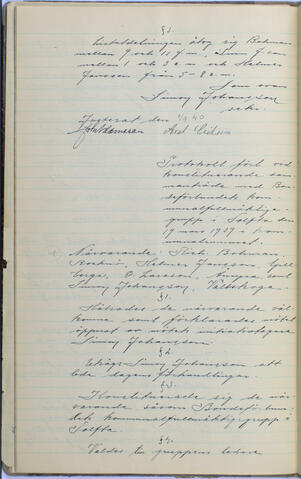 § 3.
Listutdelningen åtog sig Bohman
mellan 9 och 11 f.m.,
mellan 1 och 3 e.m och Helmer
Jansson från 5-8 e.m.
Som ovan
Simon Johansson
sekr.
Justerat den 1/9 40
Protokoll fört vid
konstituerande sam-
manträde med Bon-
deförbundets kom-
munalfullmäktige-
grupp i Tolfta den
19 mars 1939 i kom-
munalrummet.
Närvarande: Rich. Bohman,
Helmer Jansson,
O. Larsson, samt
Simon Johansson,
§ 1.
Hälsades de närvarande väl-
komna samt förklarades mötet
öppnat av mötets initiativtagare
Simon Johansson.
§ 2.
Utsågs Simon Johansson att
leda dagens förhandlingar.
§ 3.
Konstituerade sig de när-
varande såsom Bondeförbun-
dets kommunalfullmäktigegrupp i
Tolfta.
§ 4.
Valdes till gruppens ledare